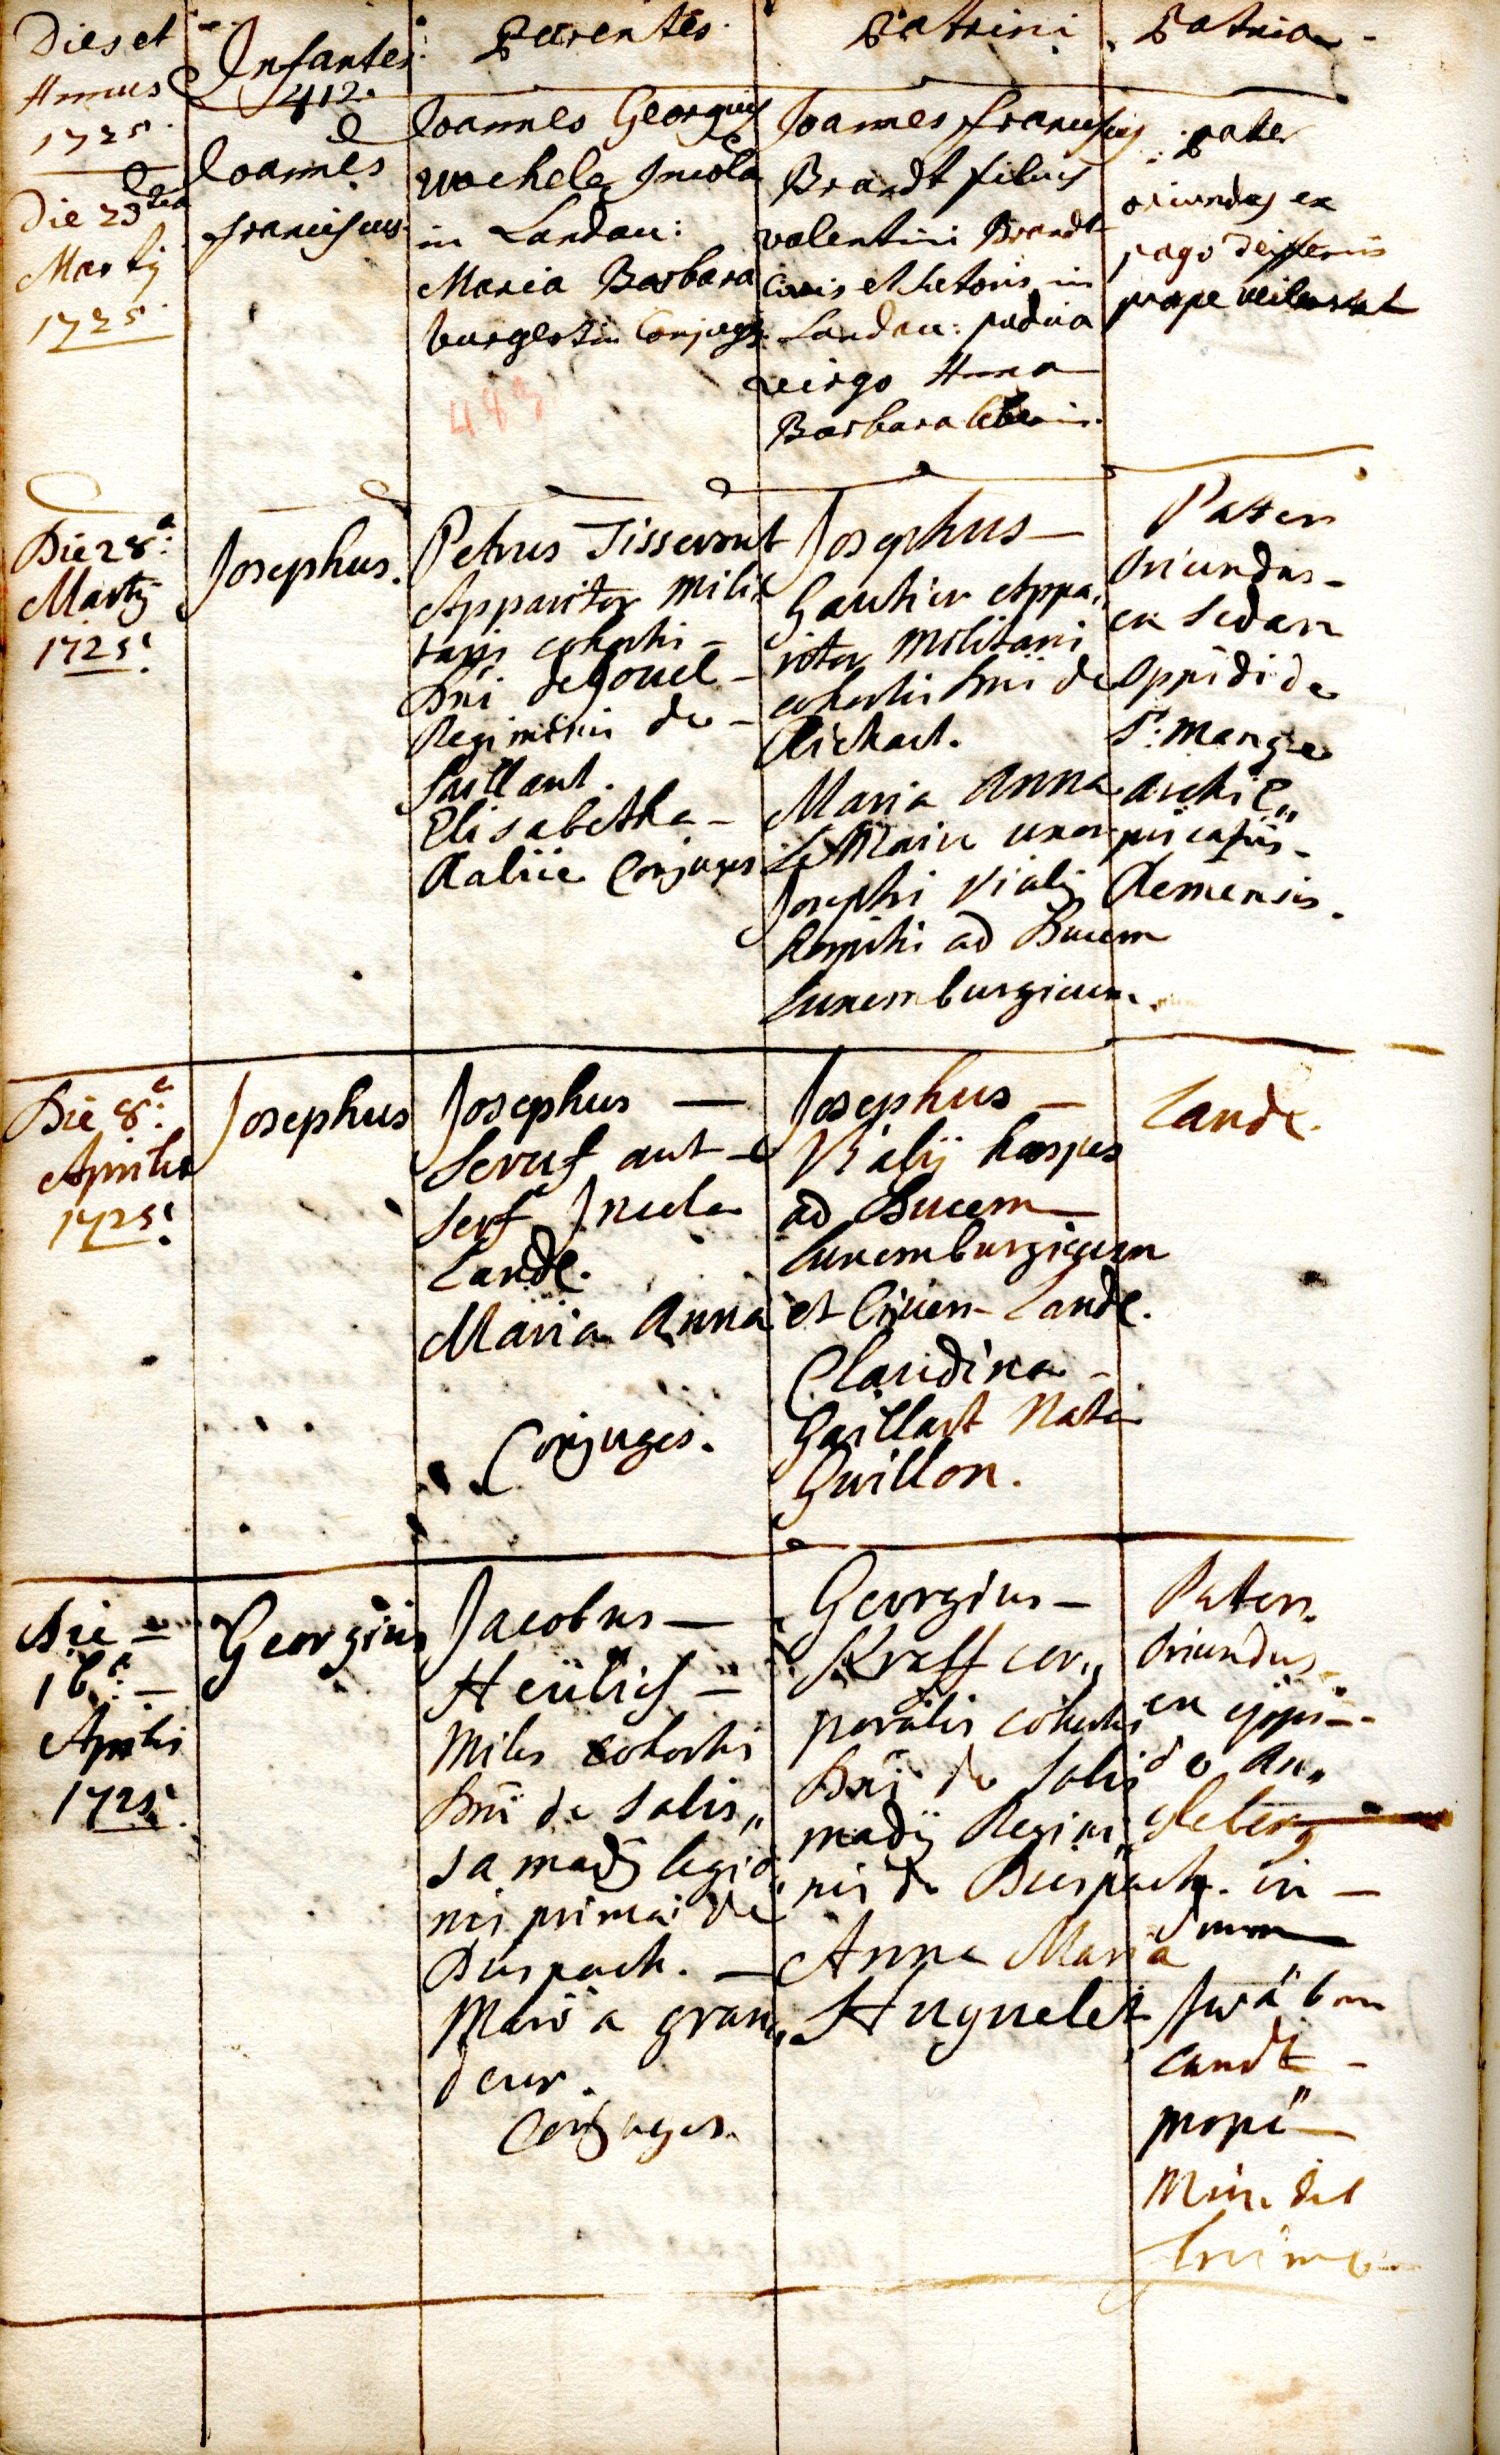 Dies et
Annus
1725
Infantes
412.
Parentes
Patrini
Patria
Die 23
Martij
1725
Joannes
franciscus
Joannes Georgius
Incola
in Landau:
Maria Barbara
Conjuges
483
Joannes franciscus
Brandt filius
valentini Brandt
civis et in
Landau: pudica
virgo Anna
Barbara
pater
oriundus ex
pago
prope
Die 28ª
Martij
1725
Josephus.
Petrus Tisserant
Apparitor mili
taris cohortis
Dni de
Regiminis de
Saillant.
Elisabetha
Conjuges
Josephus
Gautier Appa„
ritor militaris
cohortis Dni de
Richart.
Maria Anna
uxor
Josephi Vialij
hospitis ad Ducem
Luxemburgicum.
Pater
Oriundus
ex Sedan
oppidi de
St. mange
Archie„
piscatus
Remensis.
Die 8ª
Aprilis
1725
Josephus
Josephus
Seruf aut
Serf Incola
Landt.
Maria Anna
Conjuges.
Josephus
Vialij hospes
ad Ducem
Luxemburgicum
et Civem Landt.
Claudina
Gaillart Nata
Guillon.
Landt.
Die
16ª
Aprilis
1725
Georgius
Jacobus
Heülich
Miles cohortis
Dni de Salis„
samadj legio
nis primae de
Duspach.
Maria gran„
deur.
Conjuges.
Georgius
Kraff cor„
poralis cohortis
Dni de Salis
madij Regim„
nis de Duspach.
Anna Maria
Huguelet
Pater
Oriundus
ex oppi
do
in
Swäben
Landt
prope
Mindel